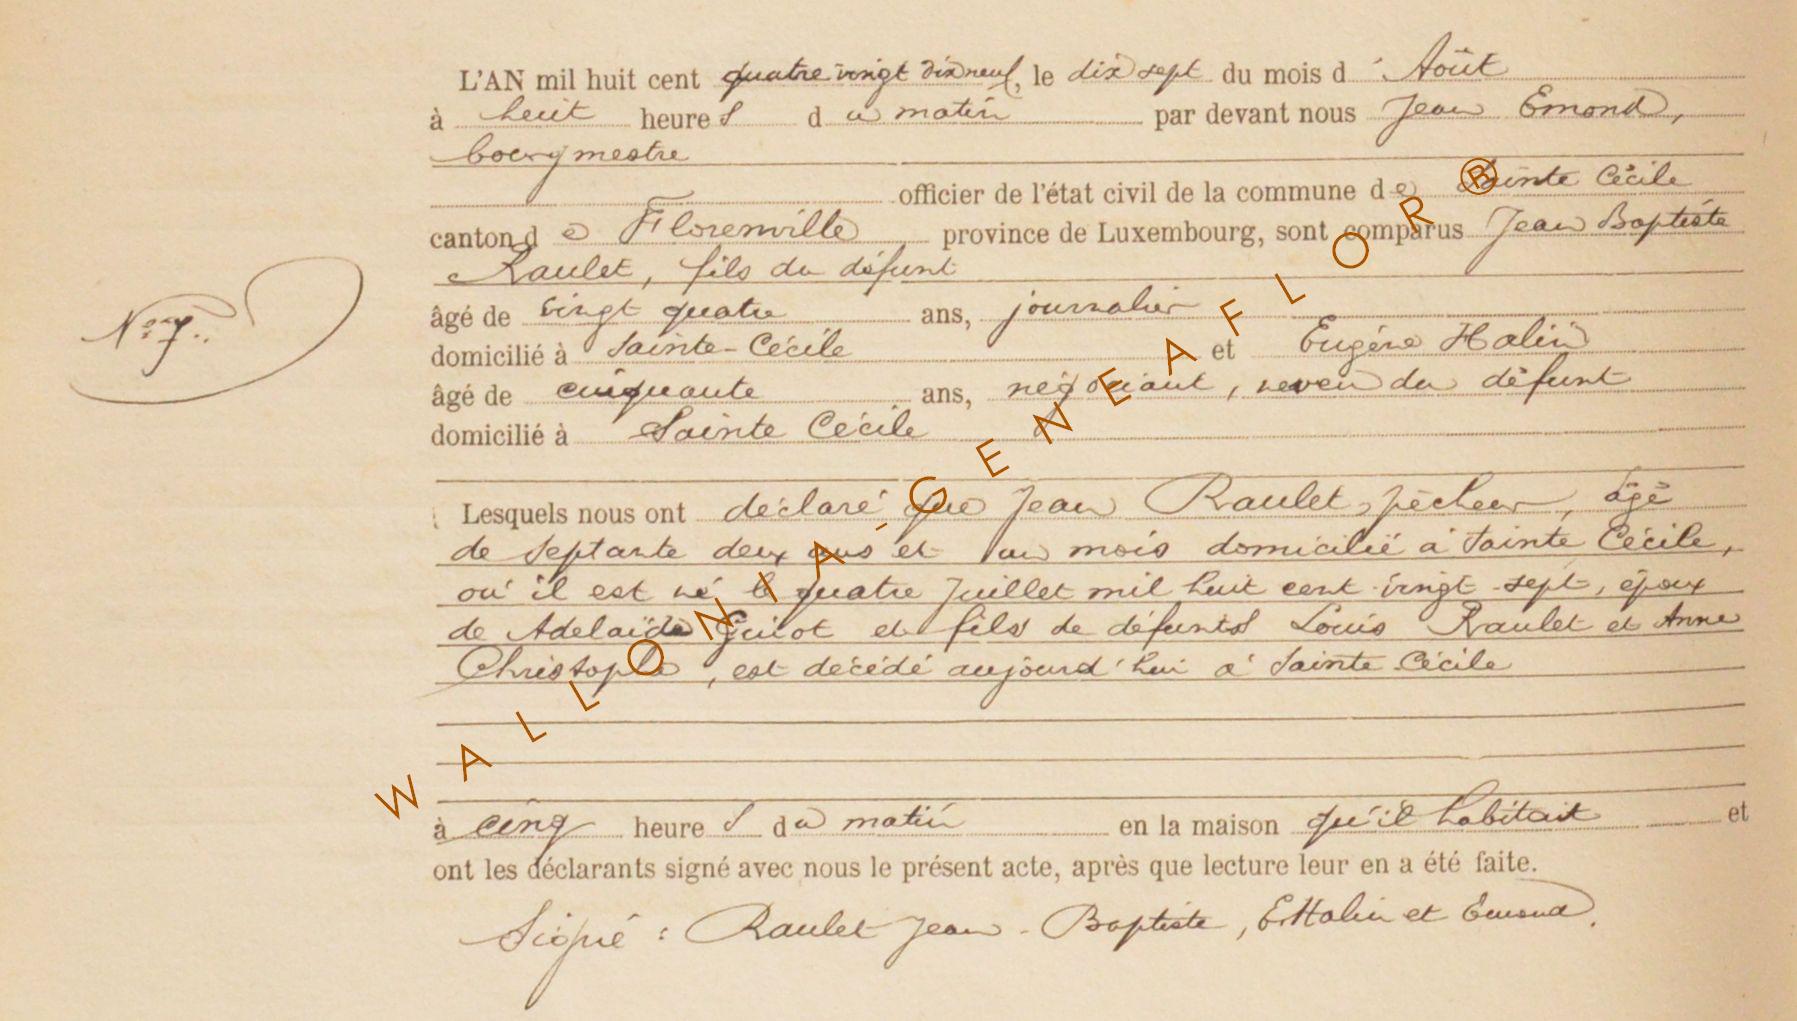 L'AN mil huit cent quatre vingt dix neuf, le dix sept du mois d' Août
à huit heures du matin par devant nous Jean Emond,
bourgmestre
officier de l'état civil de la commune de Sainte Cécile
canton de Florenville province de Luxembourg, sont comparus Jean Baptiste
Raulet, fils du défunt
âgé de vingt quatre ans, journalier
domicilié à Sainte-Cécile et Eugène Halin
âgé de cinquante ans, négociant, neveu du défunt
domicilié à Sainte Cécile
N° 7.
Lesquels nous ont déclaré que Jean Raulet, pêcheur, âgé
de septante deux ans et un mois domicilié à Sainte Cécile,
où il est né le quatre Juillet mil huit cent vingt-sept, époux
de Adelaïde Guiot et fils de défunts Louis Raulet et Anne
Christophe, est décédé aujourd'hui à Sainte Cécile
à cinq heures du matin en la maison qu'il habitait et
ont les déclarants signé avec nous le présent acte, après que lecture leur en a été faite.
Signé : Raulet Jean-Baptiste, E Halin et Emond.
WALLONIA-GENEAFLOR®